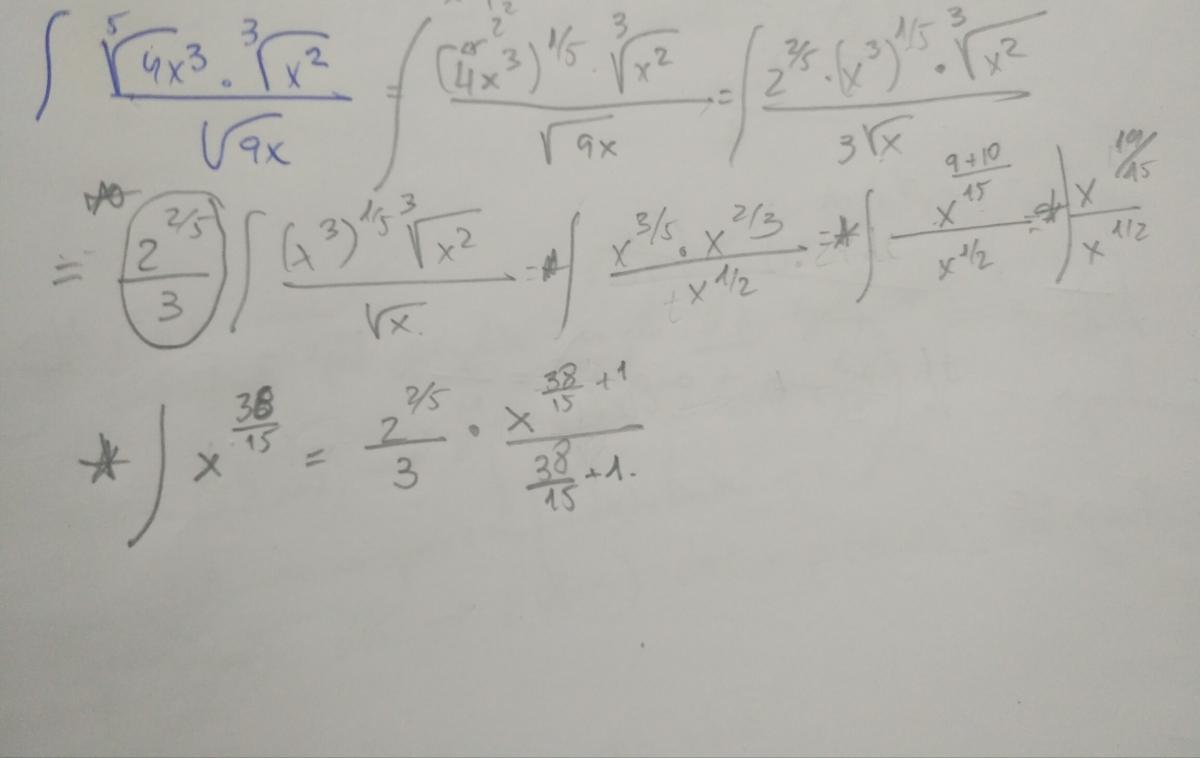 ∫ ⁵√4x³ · ³√x² / √9x = ∫ (4x³)^1/5 · ³√x² / √9x = ∫ 2^2/5 · (x³)^1/5 · ³√x² / 3√x
= 2^2/5 / 3 ∫ (x³)^1/5 ³√x² / √x = * ∫ x^3/5 · x^2/3 / x^1/2 = * ∫ x^(9+10/15) / x^1/2 = * ∫ x^19/15 / x^1/2
* ∫ x^38/15 = 2^2/5 / 3 · x^(38/15 + 1) / (38/15 + 1)